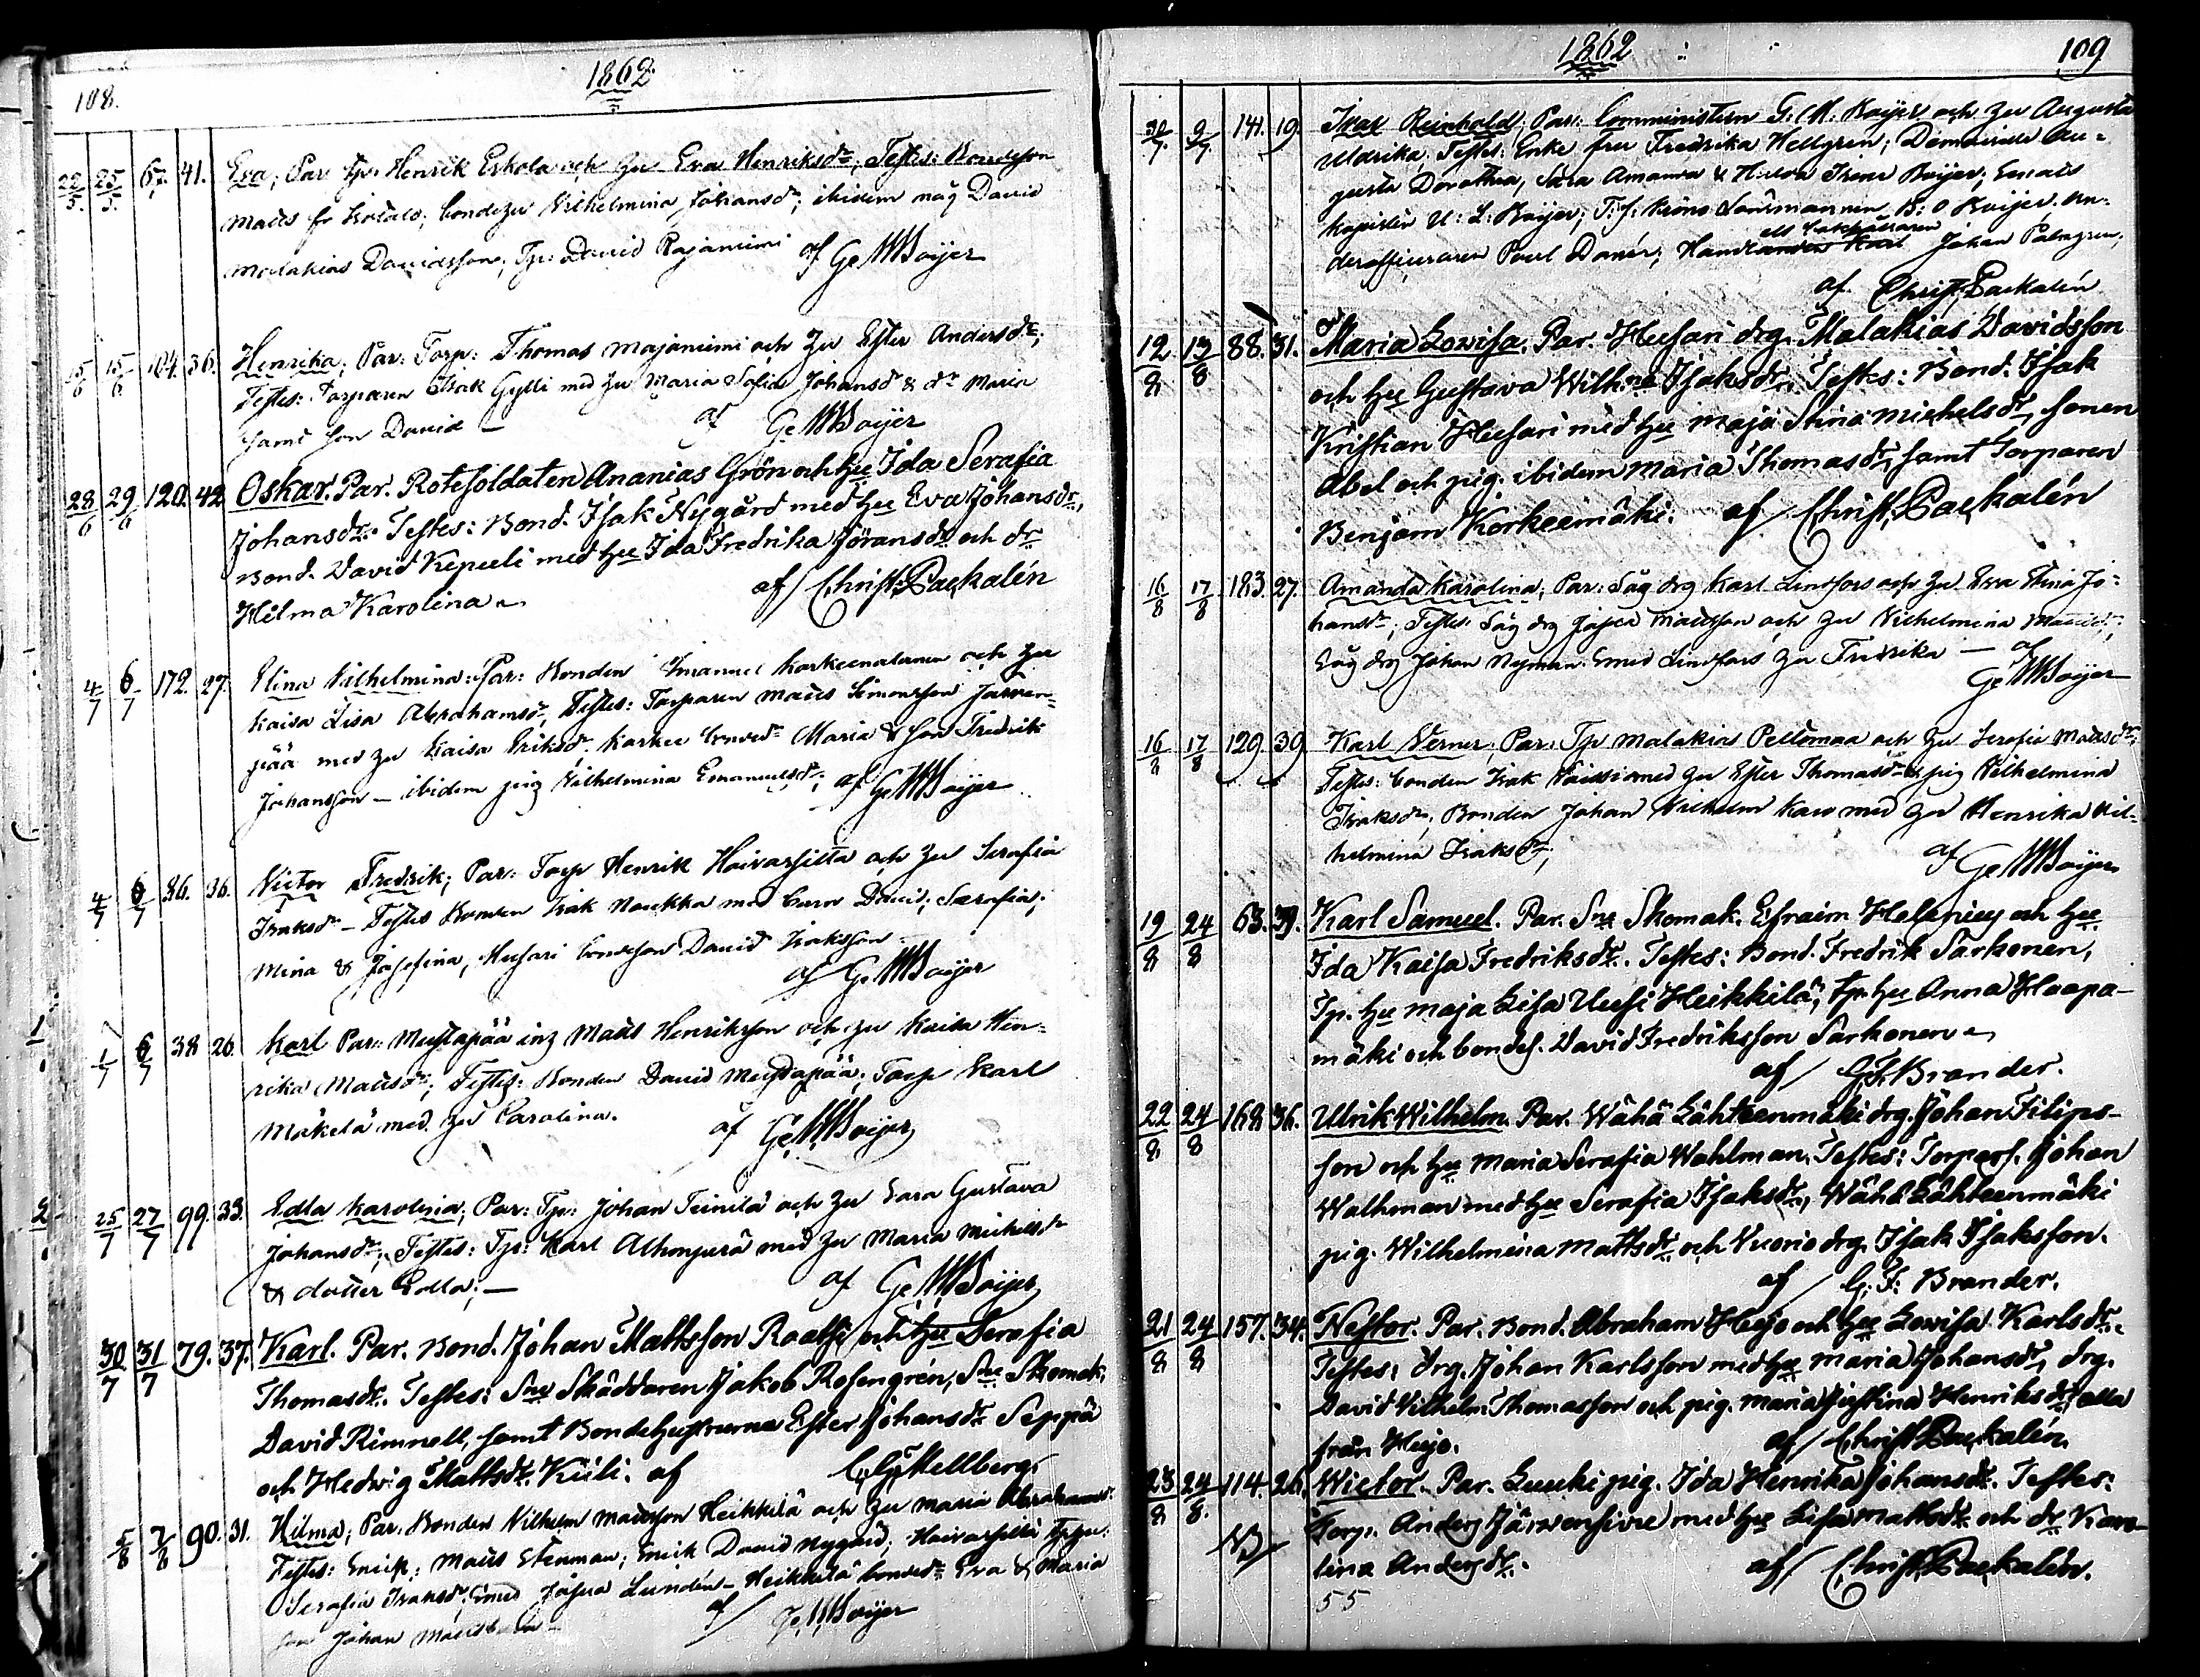 108.
1862
22/5. 25/5. 67. 41. Eva; Par: Tp: Henrik Eskola och hu Eva Henriksdr; Testes: Bondeson
Matts fr Kotala; bondehu Vilhelmina Johansdr; ibidem måg David
Malakias Davidsson, Tp: David Rajaniemi af G. M. Boijer
15/6 15/6 104. 36. Henrika; Par: Torp: Thomas Majaniemi och hu Ester Andersdr;
Testes: Torparen Isak Gylli med hu Maria Sofia Johansd & dr Maria
samt son David — af G. M. Boijer
28/6 29/6 120. 42. Oskar. Par. Rotesoldaten Ananias Grön och hu Ida Serafia
Johansdr. Testes: Bond. Isak Nygård med hu Eva Johansdr,
Bond. David Kepuli med hu Ida Fredrika Göransdr och dr
Hilma Karolina. af Christ. Paekalén
4/7 6/7 172. 27. Elina Vilhelmina: Par: Bonden Emanuel och hu
Kaisa Lisa Abrahamsdr, Testes: Torparen Matts Simonsson Jarven-
pää med hu Kaisa Eriksdr. Maria & son Fredrik
Johansson — ibidem pig Vilhelmina Emanuelsdr; af G. M. Boijer
4/7 6/7 86. 36. Victor Fredrik; Par: Torp Henrik Haivarsilta och hu Serafia
Isaksdr — Testes Bonden Isak Naukka med barn David, Serafia,
Mina & Josefina, Husari bondeson David Isaksson
af G. M. Boijer
1/7 6/7 38 26. Karl Par: Mustapää inh Matts Henriksson och hu Kaisa Hen-
rika Mattsdr; Testes: Bonden David Mustapää; Torp Karl
Mäkelä med hu Carolina. af G. M. Boijer
25/7 27/7 99. 33. Edla Karolina; Par: Tp: Johan Teinilä och hu Sara Gustava
Johansdr; Testes: Tp: Karl Alhonperä med hu Maria Mickelsdr
& dotter Lotta; — af G. M. Boijer
30/7 31/7 79. 37. Karl. Par. Bond. Johan Mattsson Raatsi och hu Serafia
Thomasdr. Testes: Sne Skäddaren Jakob Rosengrén, Sne Skomak.
David Rimnell, samt Bondehustrurna Ester Johansdr Seppä
och Hedwig Mattsdr Kiili. af C. G. Hellberg.
5/8 7/8 90. 31. Hilma; Par. Bonden Vilhelm Mattsson Heikkilä och hu Maria Abrahamsd:
Testes: Matts Stenman; David Nygård, Haivarsilta
Serafia Isaksd, Josua Lundén — Heikkilä Eva & Maria
son Johan af G. M. Boijer
1862
109
30/7. 9/7 141. 19. Ivar Reinhold; Par: Comministern G: M: Boijer och hu Augusta
Uldrika. Testes: Enke fru Fredrika Hellgren; Demoiselle Au-
gusta Dorothea, Sara Amanda & Hulda Irene Boijer;
U: L: Boijer; T: f: Länsmannen B: O Boijer, Un-
derofficeraren Paul Danér; Handlanden Karl Johan Palmgren,
af Christ. Paekalén
12/8 13/8 88. 31. Maria Lovisa. Par. Husari drg. Malakias Davidsson
och hu Gustava Wilhna Isaksdr. Testes: Bond. Isak
Kristian Husari med hu Maja Stina Michelsdr, sonen
Abel och pig. ibidem Maria Thomasdr, samt Torparen
Benjam Korkeemäki. af Christ. Paekalén
16/8 17/8 183. 27. Amanda Karolina; Par: Såg drg Karl Lindfors och hu Eva Stina Jo-
hansdr; Testes: Såg drg Josua Mattsson och hu Vilhelmina Mattsdr;
Såg drg Johan Nyman Lindfors hu Fredrika — af
G. M. Boijer
16/8 17/8 129. 39. Karl Verner; Par: Tp Malakias Peltomaa och hu Serafia Mattsdr;
Testes: bonden Isak med hu Ester Thomasdr & pig Vilhelmina
Isaksdr, Bonden Johan Vilhelm med hu Henrika Vil-
helmina Isaksdr; af G. M. Boijer
19/8 24/8 63. 39. Karl Samuel. Par. Sne Skomak. Efraim Helenius och hu
Ida Kaisa Fredriksdr. Testes: Bond. Fredrik Sarkonen,
Tp. hu Maja Lisa Uusi Heikkilä, tp. hu Anna Haapa-
mäki och bondes. David Fredriksson Sarkonen
af G. F. Brander.
22/8 24/8 168 36. Ulrik Wilhelm. Par. Wähä Lähteenmäki drg. Johan Filips-
son och hu Maria Serafia Wahlman. Testes: Torpars. Johan
Walhman med hu Serafia Isaksdr, Wähä Lähteenmäki
pig. Wilhelmina Mattsdr och Vuorio drg. Isak Isaksson.
af G. F. Brander.
21/8 24/8 157. 34. Nestor. Par. Bond. Abraham Hujo och hu Lovisa Karlsdr.
Testes: drg. Johan Karlsson med hu Maria Johansdr, drg.
David Vilhelm Thomasson och pig. Maria Justina Henriksdr, alla
från Hujo. af Christ. Paekalén.
23/8 24/8. 114. 26. Wictor. Par. Luuki pig. Ida Henrika Johansdr. Testes:
NB Torp. Anders Järvensivu med hu Lisa Mattsdr och dr Karo-
lina Andersdr. af Christ. Paekalén.
55